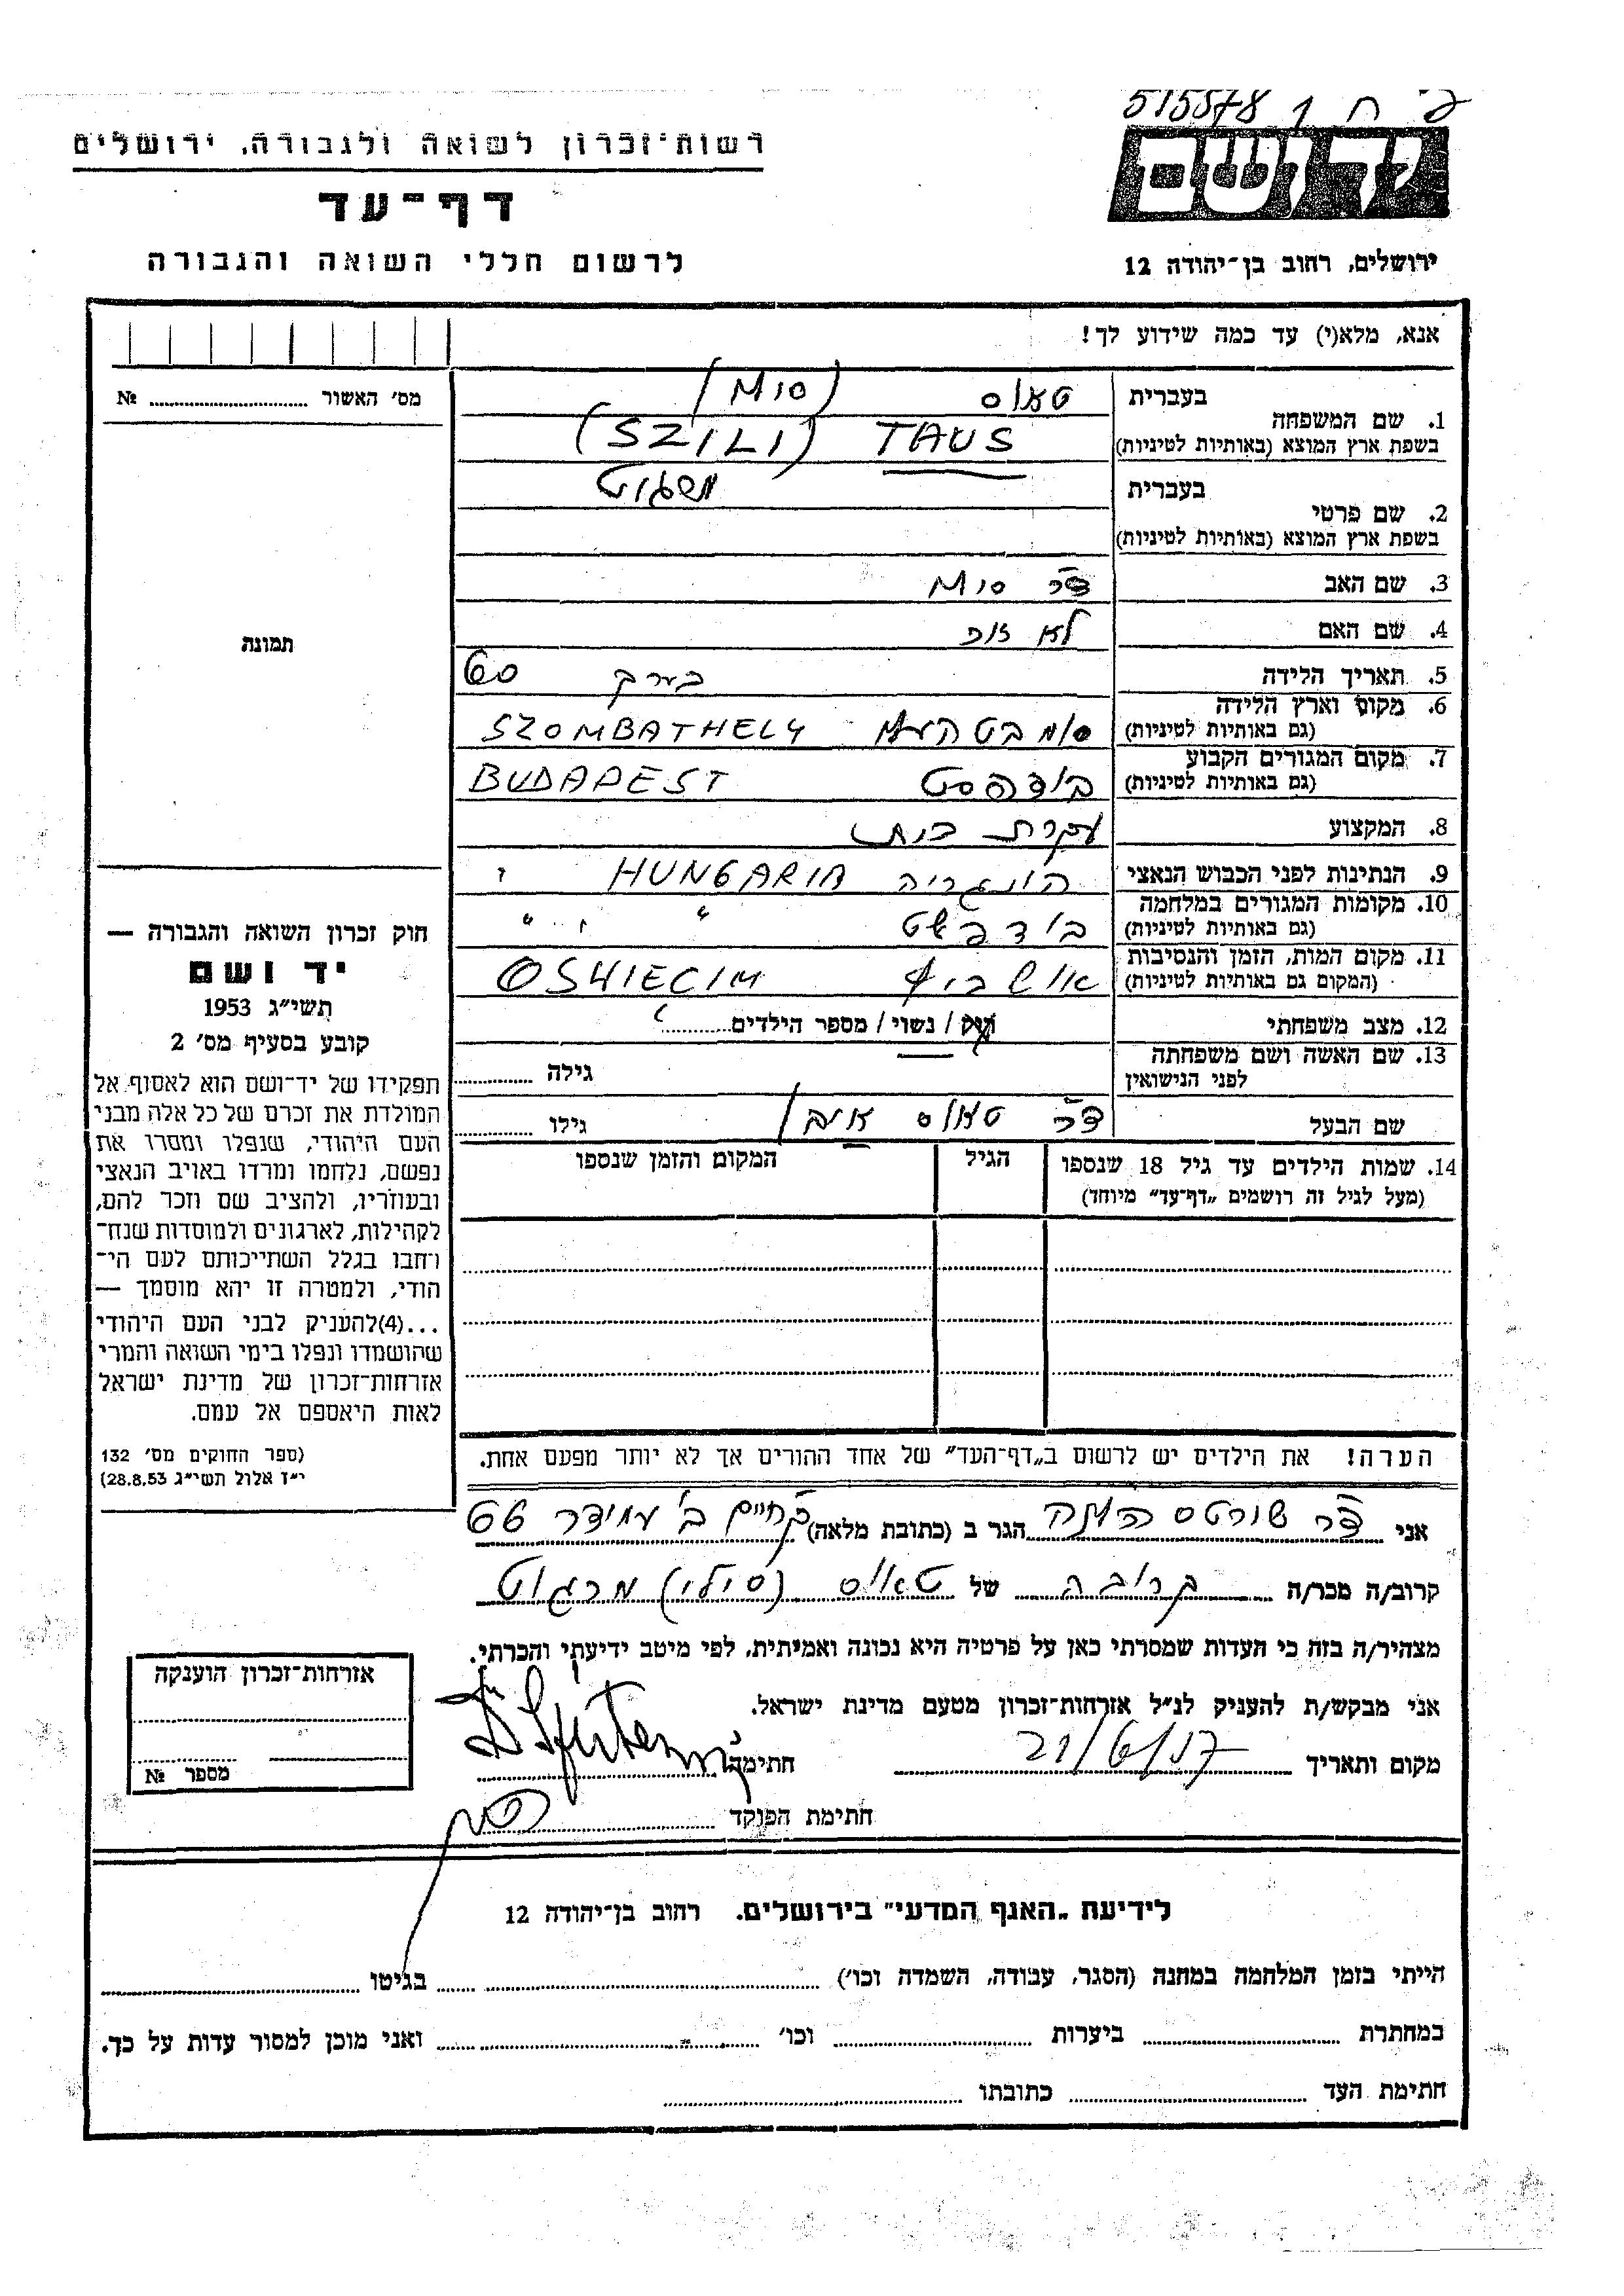 515578
רשות־זכרון לשואה ולגבורה, ירושלים
ידושם
דף־עד
לרשום חללי השואה והגבורה
ירושלים, רחוב בן־יהודה 12
אנא, מלא(י) עד כמה שידוע לך!
מס׳ האשור № 
1. שם המשפחה
בעברית טאוס
בשפת ארץ המוצא (באותיות לטיניות) TAUS (SZILI)
2. שם פרטי
בעברית
בשפת ארץ המוצא (באותיות לטיניות)
3. שם האב דר
4. שם האם לא
5. תאריך הלידה בערך 60
6. מקום וארץ הלידה
(גם באותיות לטיניות) SZOMBATHELY
7. מקום המגורים הקבוע
(גם באותיות לטיניות) בודפסט BUDAPEST
8. המקצוע עקרת בית
9. הנתינות לפני הכבוש הנאצי הונגריה HUNGARIA
10. מקומות המגורים במלחמה
(גם באותיות לטיניות) בודפשט " "
11. מקום המות, הזמן והנסיבות
(המקום גם באותיות לטיניות) אושביץ OSHIECIM
12. מצב משפחתי רווק / נשוי / מספר הילדים
13. שם האשה ושם משפחתה
לפני הנישואין גילה
שם הבעל דר טאוס גילו
14. שמות הילדים עד גיל 18 שנספו הגיל המקום והזמן שנספו
(מעל לגיל זה רושמים „דף־עד״ מיוחד)
הערה! את הילדים יש לרשום ב„דף־העד״ של אחד ההורים אך לא יותר מפעם אחת.
תמונה
חוק זכרון השואה והגבורה —
יד ושם
תשי״ג 1953
קובע בסעיף מס׳ 2
תפקידו של יד־ושם הוא לאסוף אל
המולדת את זכרם של כל אלה מבני
העם היהודי, שנפלו ומסרו את
נפשם, נלחמו ומרדו באויב הנאצי
ובעוזריו, ולהציב שם וזכר להם,
לקהילות, לארגונים ולמוסדות שנח־
רחבו בגלל השתייכותם לעם הי־
הודי, ולמטרה זו יהא מוסמך —
...(4)להעניק לבני העם היהודי
שהושמדו ונפלו בימי השואה והמרי
אזרחות־זכרון של מדינת ישראל
לאות היאספם אל עמם.
(ספר החוקים מס׳ 132
י״ז אלול תשי״ג 28.8.53)
אני דר שורטס הגר ב (כתובת מלאה) ק חיים ב׳ עמידר
קרוב/ה מכר/ה קרובה של טאוס (סילי) מרגוט
מצהיר/ה בזה כי העדות שמסרתי כאן על פרטיה היא נכונה ואמיתית, לפי מיטב ידיעתי והכרתי.
אני מבקש/ת להעניק לנ״ל אזרחות־זכרון מטעם מדינת ישראל.
מקום ותאריך 21/6/57 חתימה
חתימת הפוקד
אזרחות־זכרון הוענקה
מספר №
לידיעת „האגף המדעי״ בירושלים. רחוב בן־יהודה 12
הייתי בזמן המלחמה במחנה (הסגר, עבודה, השמדה וכו׳) בגיטו
במחתרת ביערות וכו׳ ואני מוכן למסור עדות על כך.
חתימת העד כתובתו